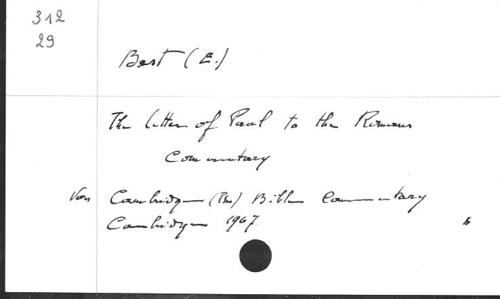 312
29
Best (E.)
The letter of Paul to the Romans
Commentary
Von Cambridge (The) Bible Commentary
Cambridge 1967